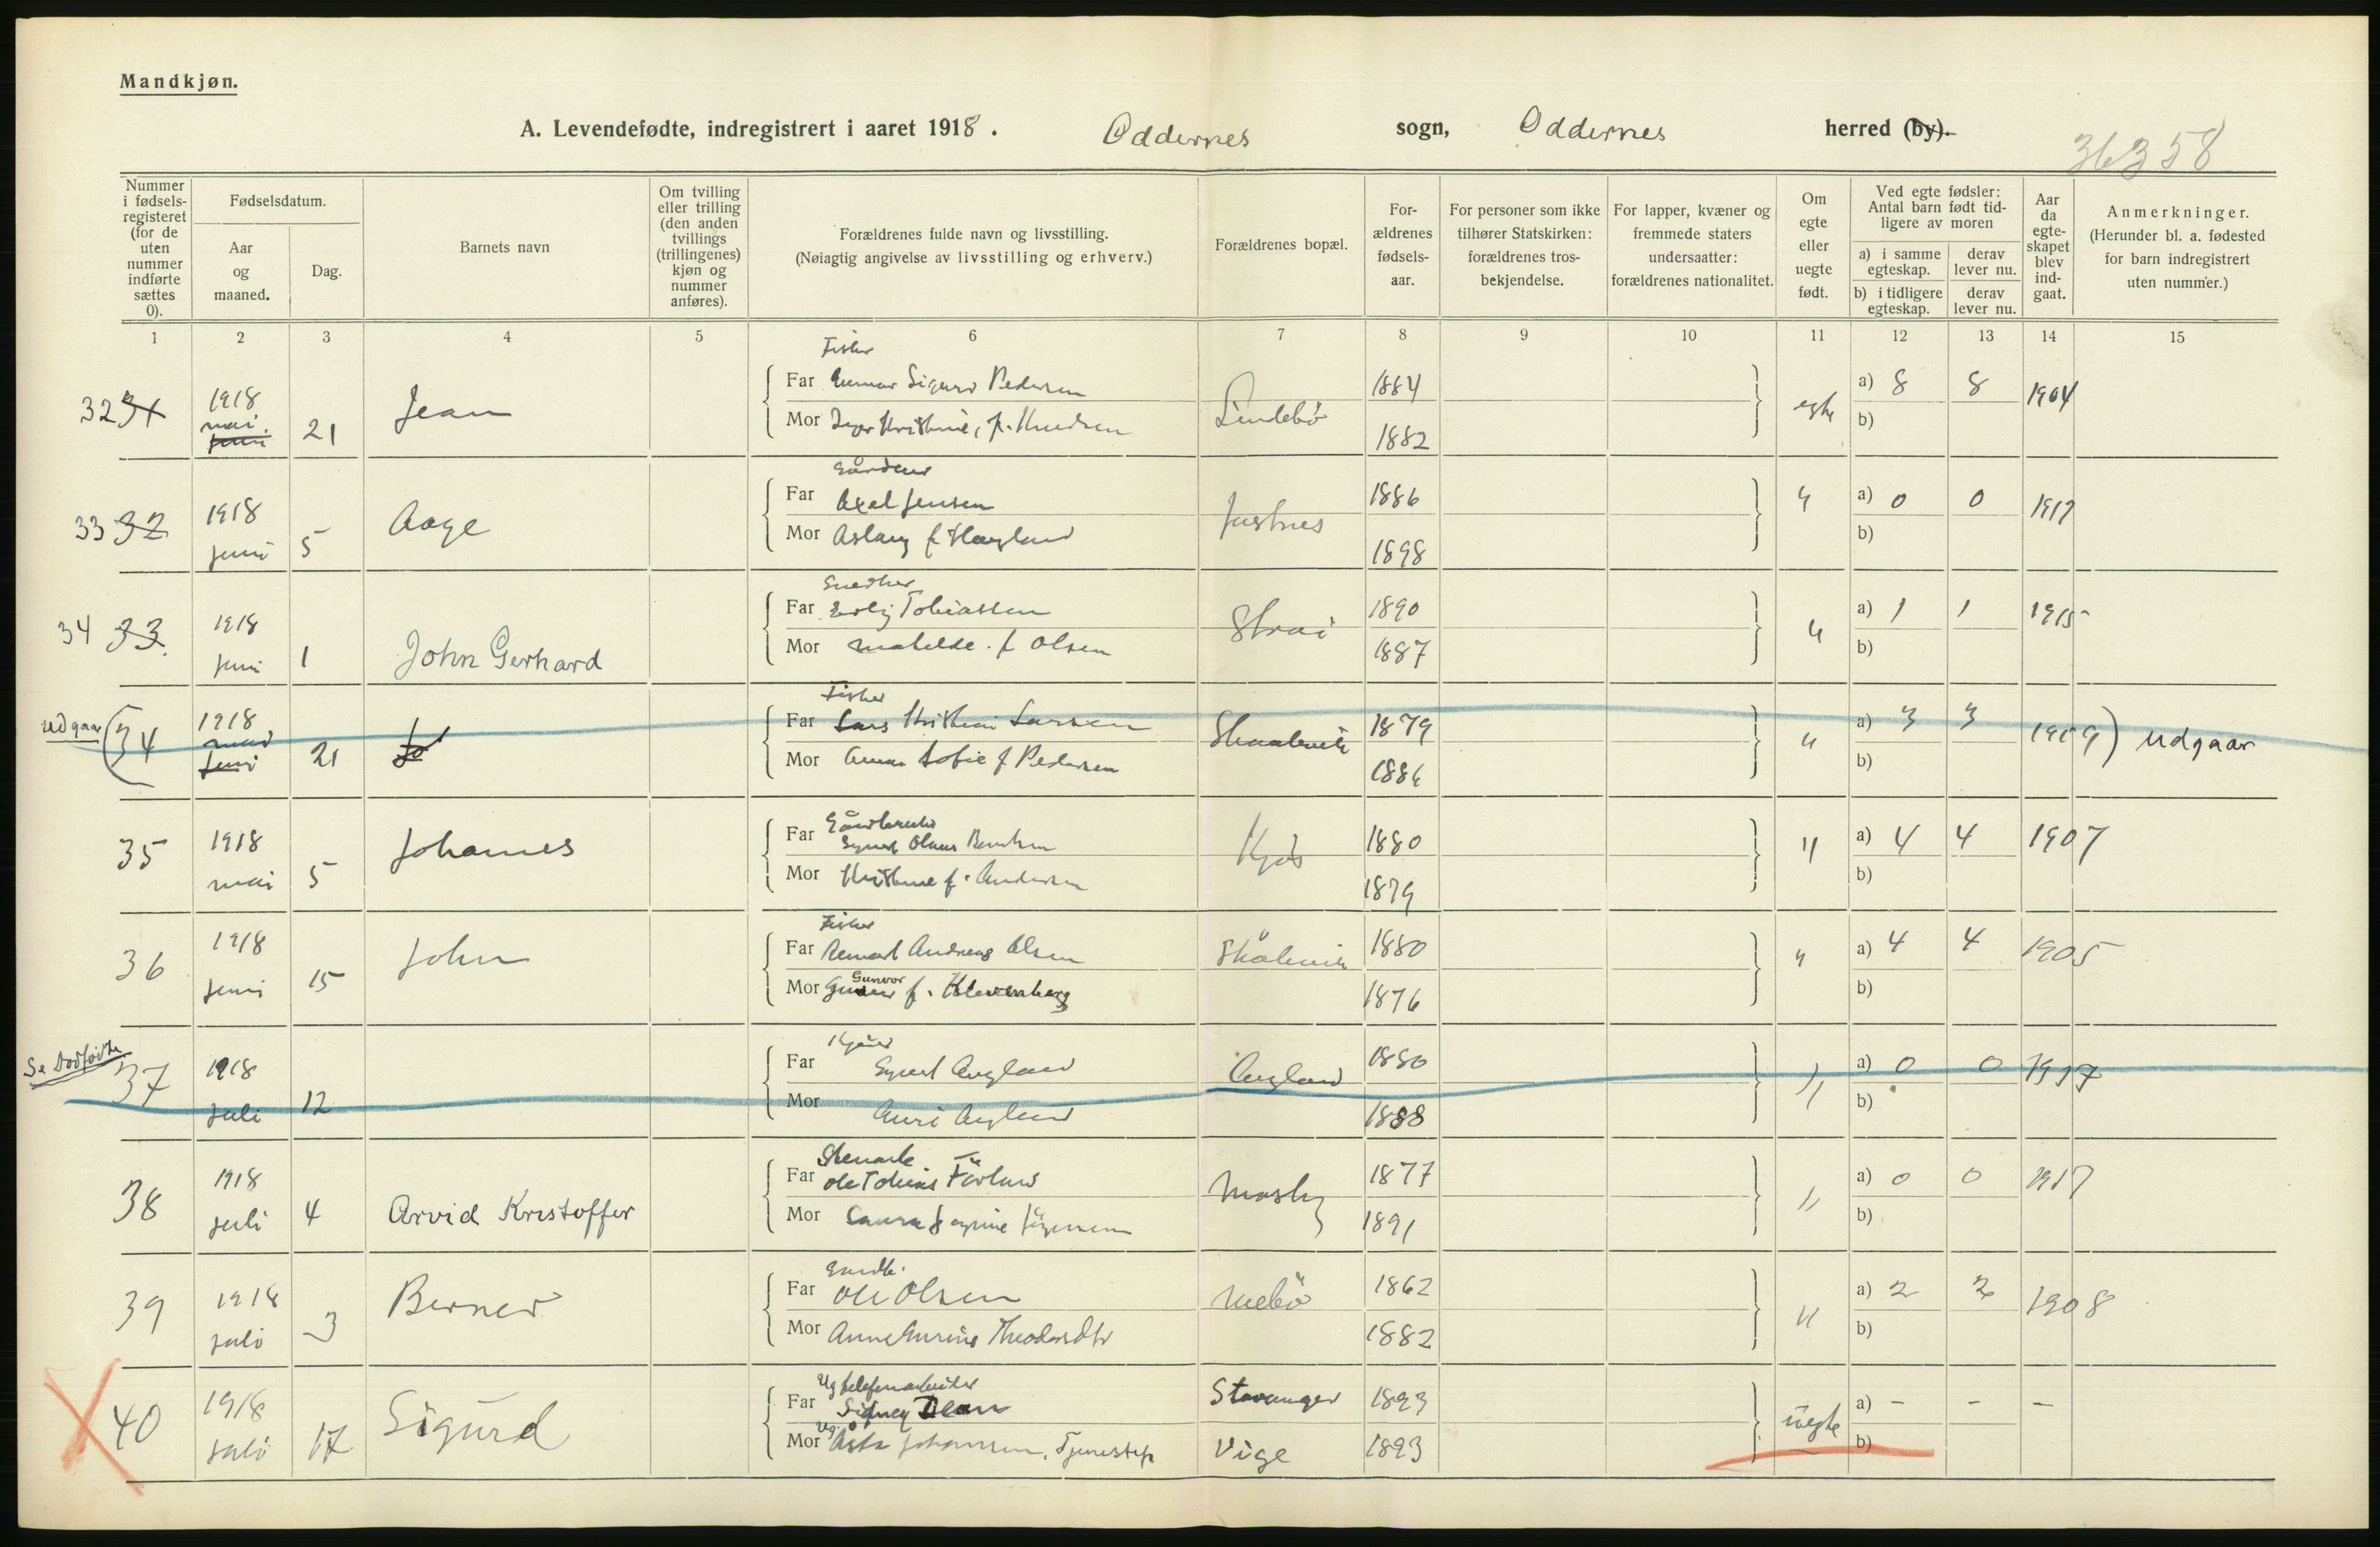 Mandkjøn.
A. Levendefødte, indregistrert i aaret 1918. Oddernes sogn, Oddernes herred (by).
36358
Nummer i fødsels-registeret (for de uten nummer indførte sættes 0).
Fødselsdatum.
Aar og maaned.
Dag.
Barnets navn
Om tvilling eller trilling (den anden tvillings (trillingenes) kjøn og nummer anføres).
Forældrenes fulde navn og livsstilling.
(Nøiagtig angivelse av livsstilling og erhverv.)
Forældrenes bopæl.
For-ældrenes fødsels-aar.
For personer som ikke tilhører Statskirken: forældrenes tros-bekjendelse.
For lapper, kvæner og fremmede staters undersaatter: forældrenes nationalitet.
Om egte eller uegte født.
Ved egte fødsler: Antal barn født tid-ligere av moren
a) i samme egteskap.
derav lever nu.
b) i tidligere egteskap.
derav lever nu.
Aar da egte-skapet blev ind-gaat.
Anmerkninger.
(Herunder bl. a. fødested for barn indregistrert uten nummer.)
1 2 3 4 5 6 7 8 9 10 11 12 13 14 15
Fisker
32 31 1918 mai juni 21 Jean
Far Gunnar Sigurd Pedersen 1884 egte a) 8 8 1904
Mor Inger Kristine, f. Knudsen 1882 b)
33 32 1918 juni 5 Aage
Far Axel Jensen Justnes 1886 " a) 0 0 1917
Mor Aslaug f Haugland 1898 b)
Snedker
34 33 1918 juni 1 John Gerhard
Far Tobiassen Strai 1890 " a) 1 1 1915
Mor Mathilde f Olsen 1887 b)
Fisker
udgaar (34 1918 mai juni 21 Jo
Far Lars Kristian Larsen 1879 " a) 3 3 1909) udgaar
Mor Anna Sofie f Pedersen b)
Gårdbruker
35 1918 mai 5 Johannes
Far Kjos 1880 " a) 4 4 1907
Mor Kristine f. Andersen 1879 b)
Fisker
36 1918 juni 15 John
Far Andreas Olsen Skålevik 1880 " a) 4 4 1905
Mor Gunvor f. 1876 b)
Se Dødfødte
37 1918 juli 12
Far Augland Augland 1880 " a) 0 0 1917
Mor Augland 1888 b)
38 1918 juli 4 Arvid Kristoffer
Far Ole Tobias Mosby 1877 " a) 0 0 1917
Mor Laura 1891 b)
39 1918 juli 3 Berner
Far Ole Olsen 1862 " a) 2 2 1908
Mor 1882 b)
Ug telefonarbeider
40 1918 juli 17 Sigurd
Far Sidney Dean Stavanger 1893 uegte a) - - -
Mor Ug. Åsta Johannsen, Tjenestep Vige 1893 b)